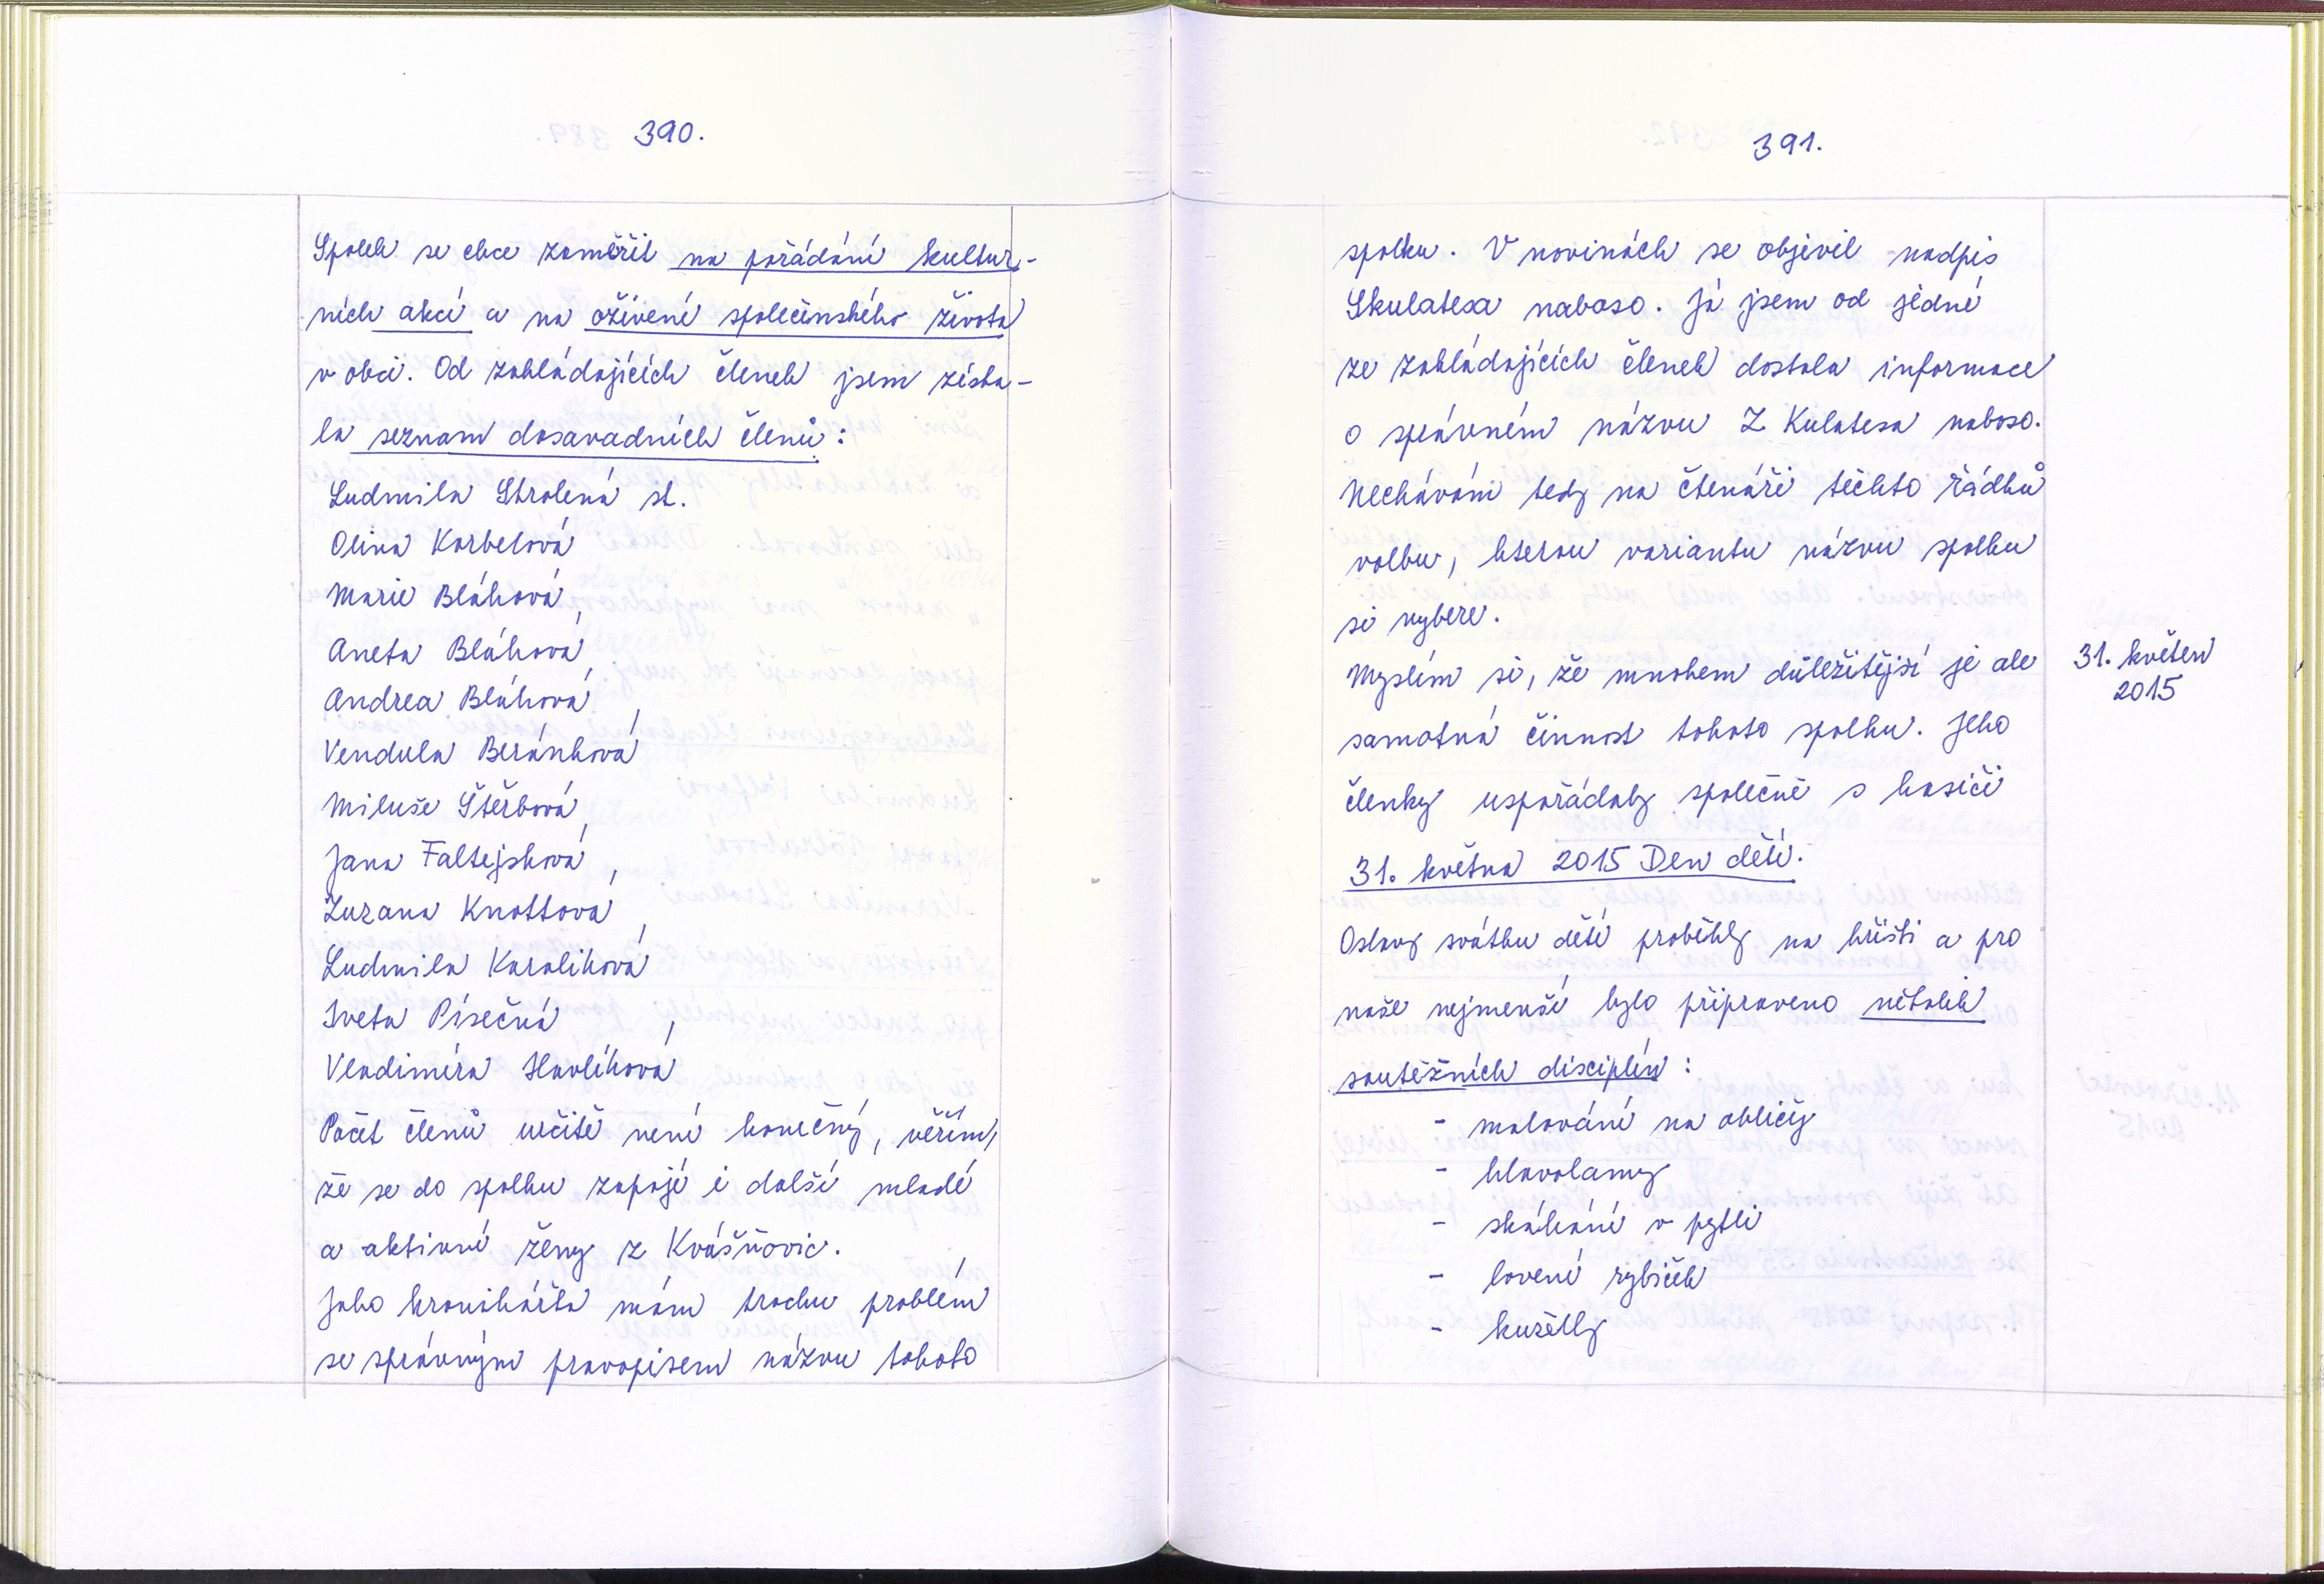 390.
Spolek se chce zaměřit na pořádání kultur-
ních akcí a na oživení společenského života
v obci. Od zakládajících členek jsem získa-
la seznam dosavadních členů:
Ludmila Strolená st.
Olina Korbelová
Marie Bláhová,
Aneta Bláhová,
Andrea Bláhová,
Vendula Beránková
Miluše Štěrbová,
Jana Faltejsková,
Zuzana Knottová,
Ludmila Karalíková
Iveta Písečná,
Vladimíra Havlíková
Počet členů určitě není konečný, věřím,
že se do spolku zapojí i další mladé
a aktivní ženy z Kvášňovic.
Jako kronikářka mám trochu problém
se správným pravopisem názvu tohoto
391.
spolku. V novinách se objevil nadpis
Skulatexa naboso. Já jsem od jedné
ze zakládajících členek dostala informace
o správném názvu Z Kulatexa naboso.
Nechávám tedy na čtenáři těchto řádků
volbu, kterou variantu názvu spolku
si vybere.
Myslím si, že mnohem důležitější je ale
samotná činnost tohoto spolku. Jeho
členky uspořádaly společně s hasiči
31. května 2015 Den dětí.
Oslavy svátku dětí proběhly na hřišti a pro
naše nejmenší bylo připraveno několik
soutěžních disciplín:
- malování na obličej
- hlavolamy
- skákání v pytli
- lovení rybiček
- kuželky
31. květen
2015